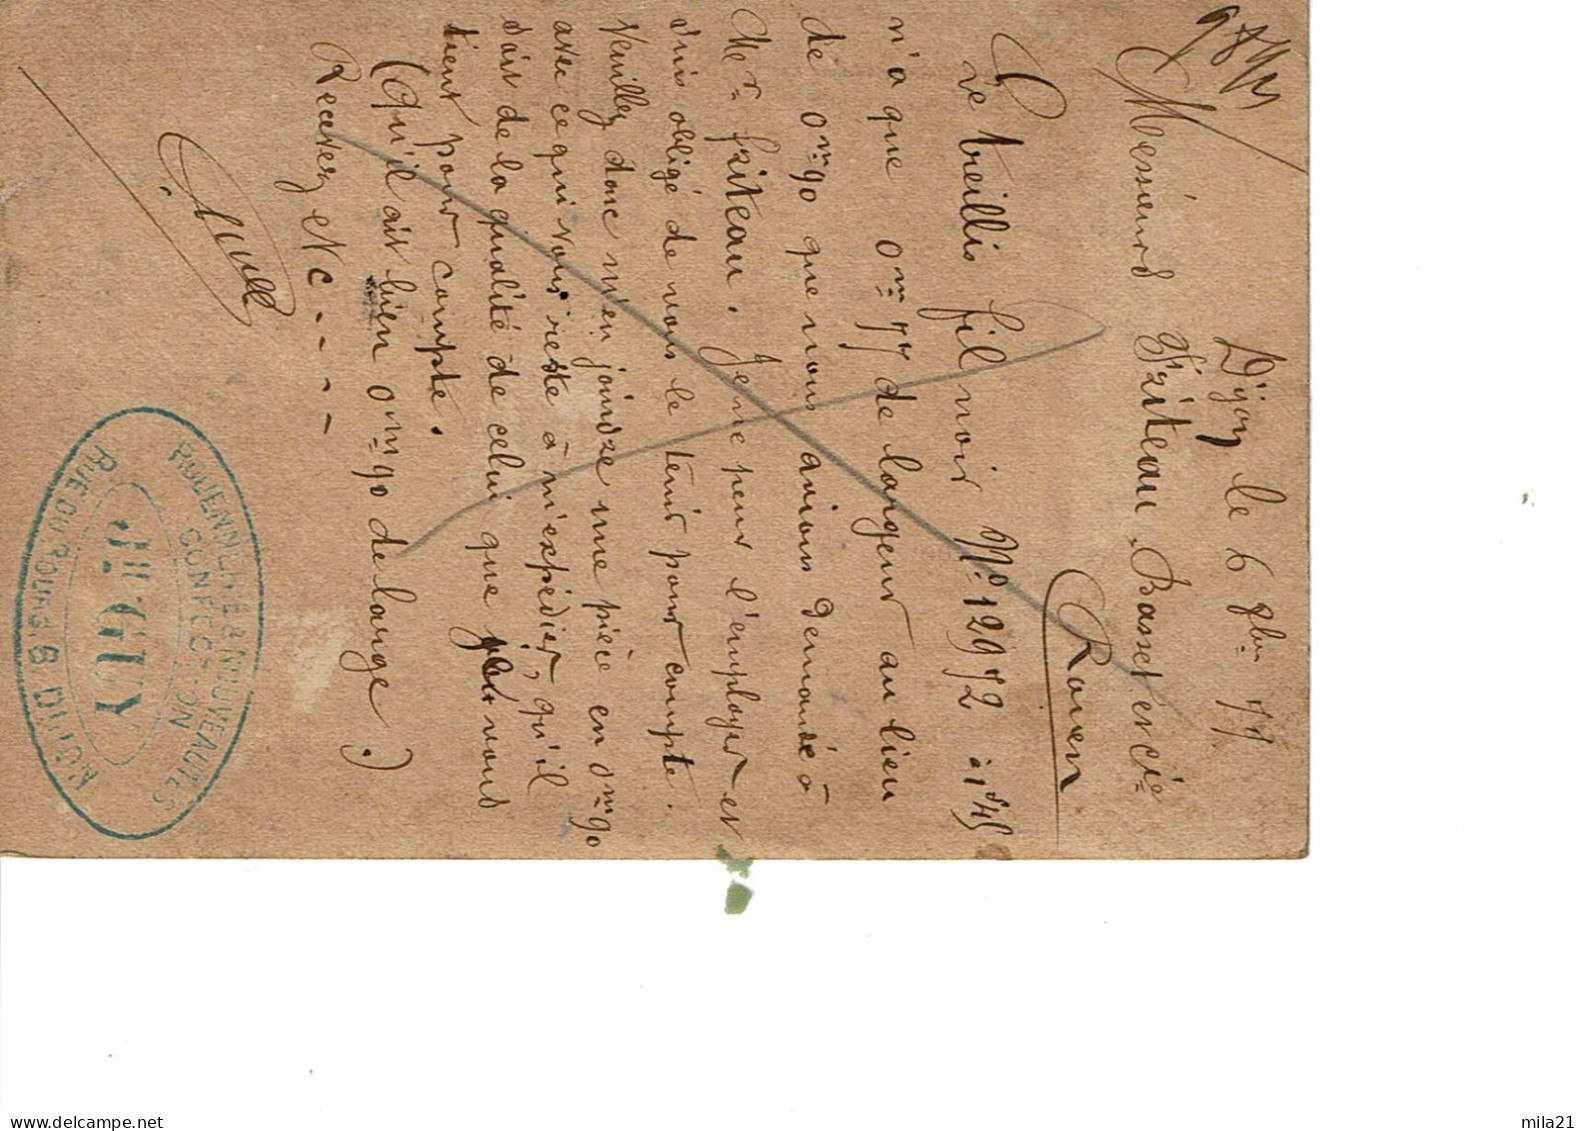 Dijon le 6 9bre 77
Messieurs Friteau, Basset et Cie
Rouen
Le treillis fil noir No 12972 à 1f45
n'a que 0m77 de largeur au lieu
de 0m90 que nous avions demandé à
Mr. Friteau. Je ne peux l'employer et
suis obligé de vous le tenir pour compte.
Veuillez donc m'en joindre une pièce en 0m90
avec ce qui vous reste à m'expédier, qu'il
soit de la qualité de celui que vous
tient pour compte.
(Qu'il ait bien 0m90 de large.)
Recevez Nc - - - -
ROUENNERIE & NOUVEAUTÉS
CONFECTION
GUY
RUE DU BOURG, 8, DIJON
delcampe.net
mila21